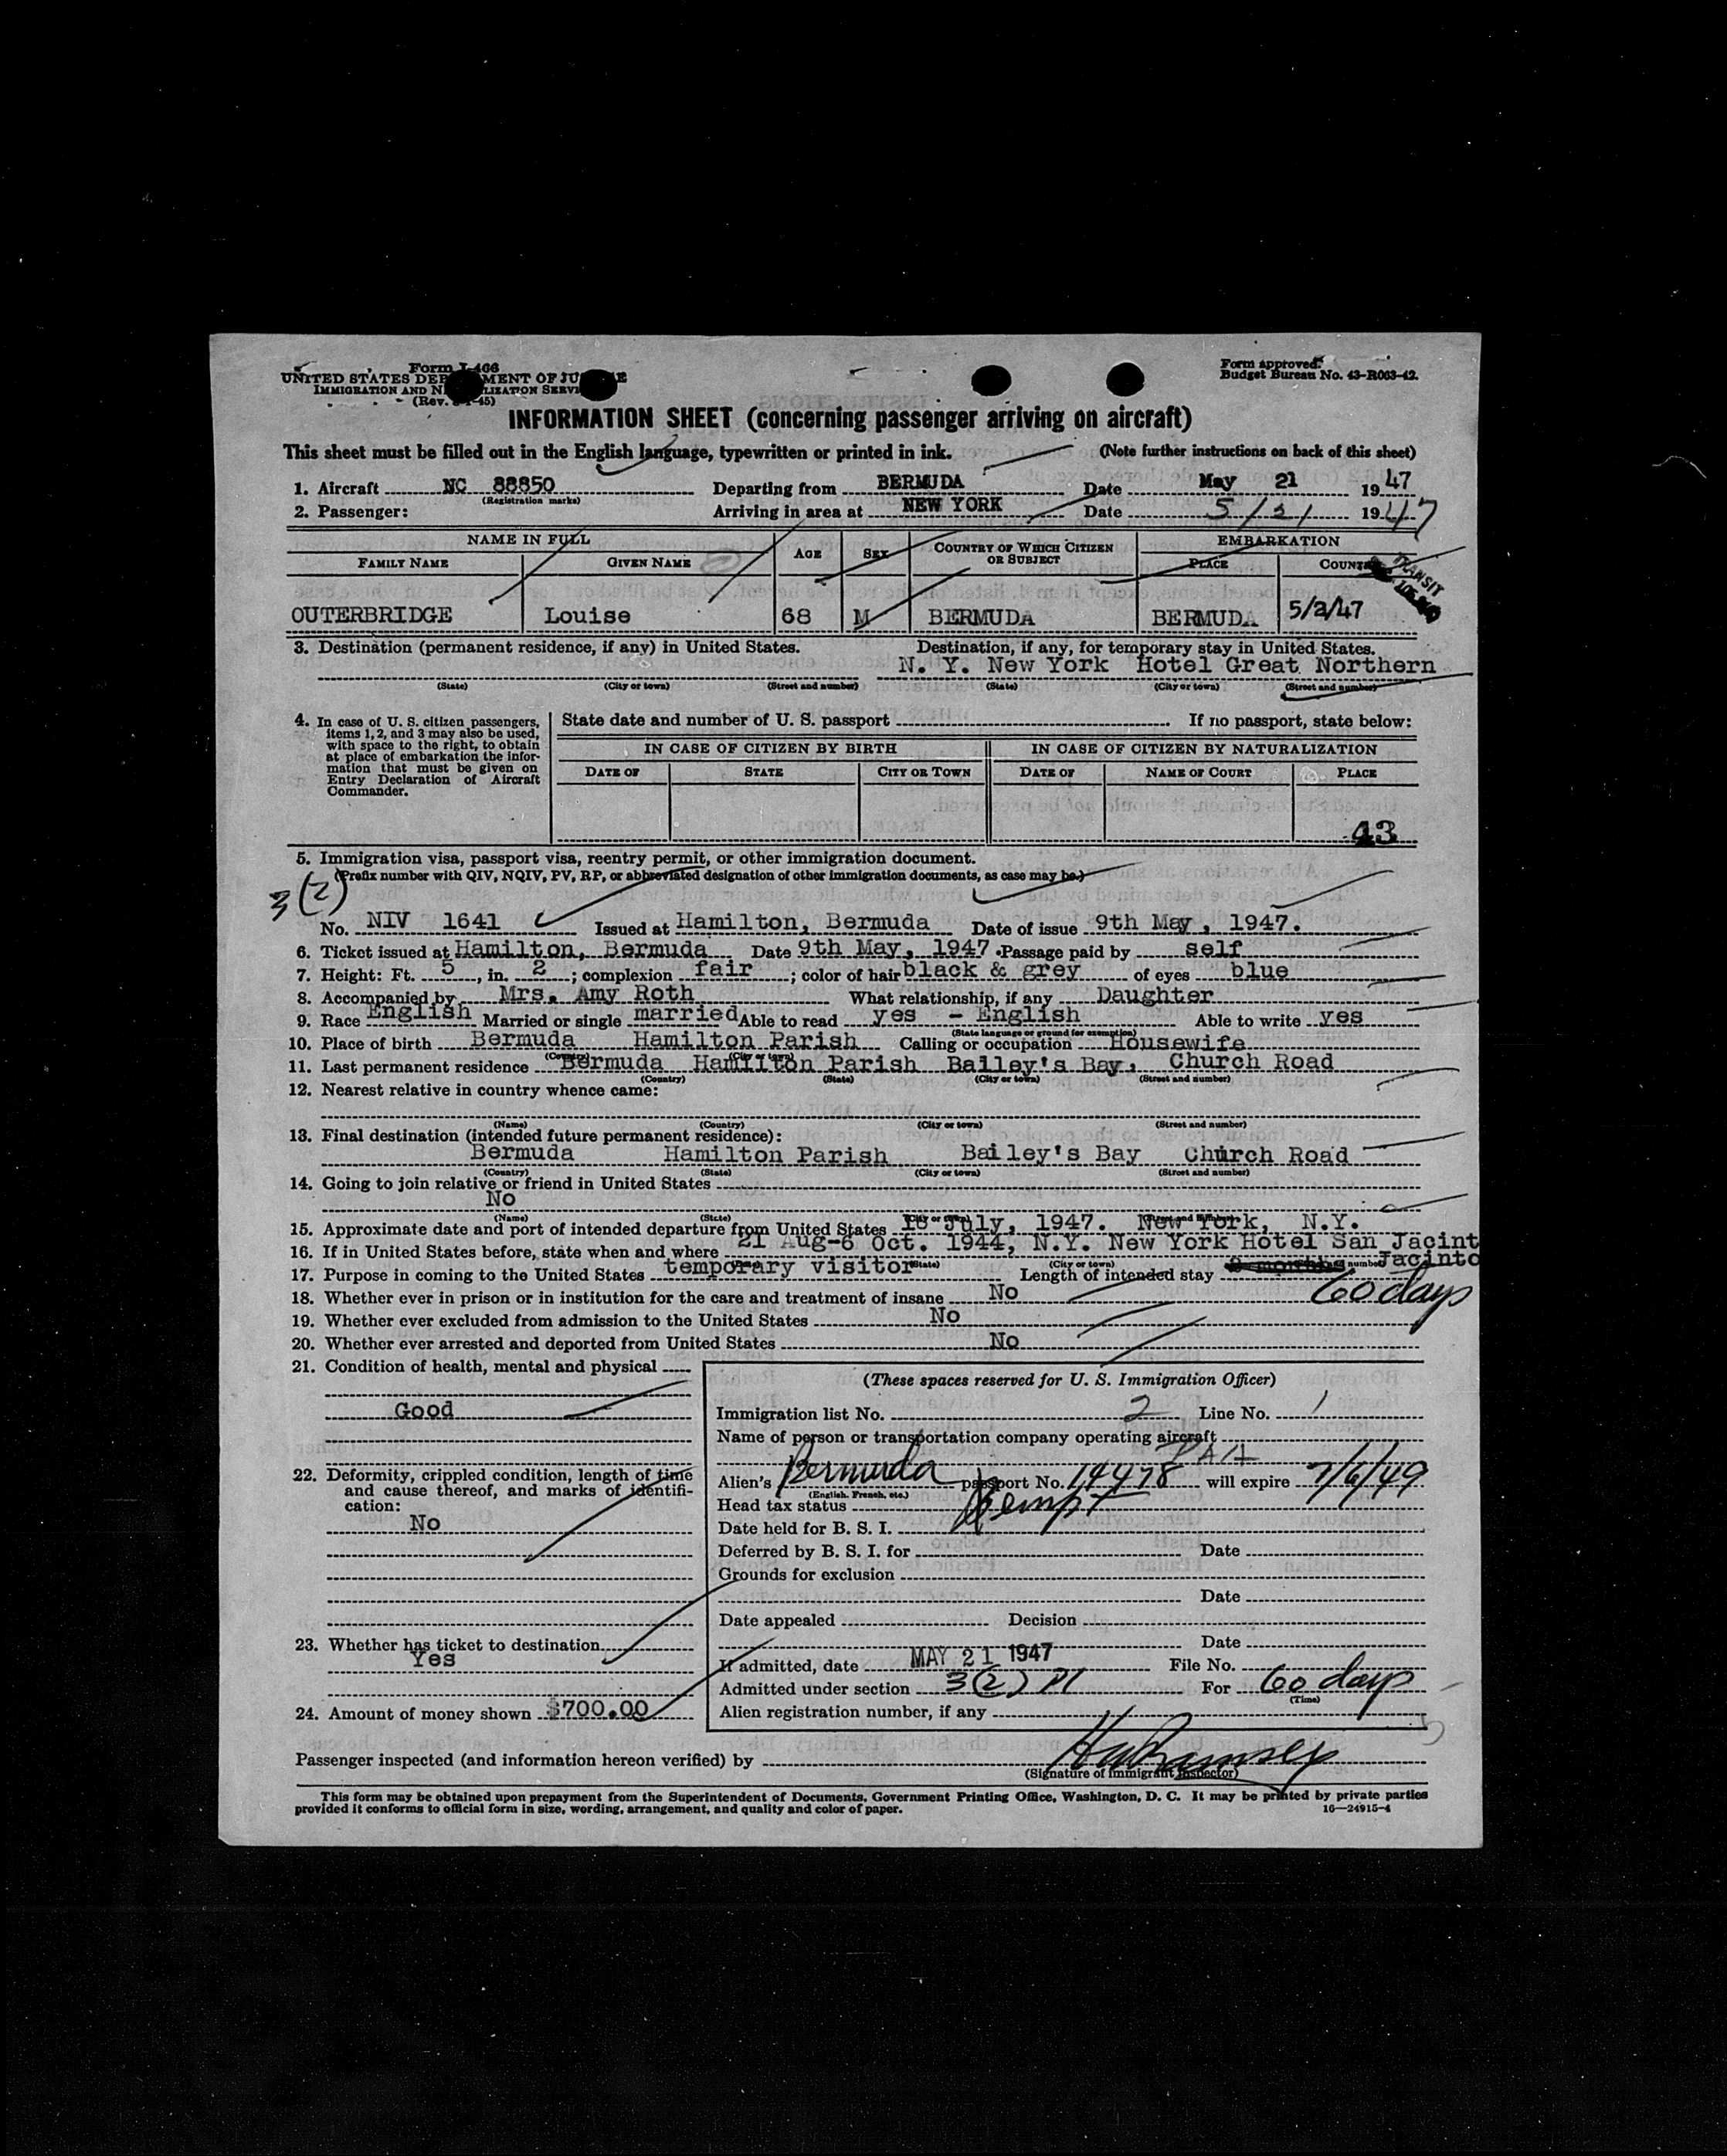 Form I-466
UNITED STATES DEP MENT OF JU E
IMMIGRATION AND N LIZATION SERVI
(Rev. -45)
Form approved.
Budget Bureau No. 43-R063-42.
INFORMATION SHEET (concerning passenger arriving on aircraft)
This sheet must be filled out in the English language, typewritten or printed in ink. (Note further instructions on back of this sheet)
1. Aircraft NC 88850 Departing from BERMUDA Date May 21 1947
(Registration marks)
2. Passenger: Arriving in area at NEW YORK Date 5/21 1947
NAME IN FULL AGE SEX COUNTRY OF WHICH CITIZEN OR SUBJECT EMBARKATION
FAMILY NAME GIVEN NAME PLACE COUNT
TRANSIT
OUTERBRIDGE Louise 68 M BERMUDA BERMUDA 5/2/47
3. Destination (permanent residence, if any) in United States. Destination, if any, for temporary stay in United States.
N. Y. New York Hotel Great Northern
(State) (City or town) (Street and number) (State) (City or town) (Street and number)
4. In case of U. S. citizen passengers, items 1, 2, and 3 may also be used, with space to the right, to obtain at place of embarkation the information that must be given on Entry Declaration of Aircraft Commander.
State date and number of U. S. passport If no passport, state below:
IN CASE OF CITIZEN BY BIRTH IN CASE OF CITIZEN BY NATURALIZATION
DATE OF STATE CITY OR TOWN DATE OF NAME OF COURT PLACE
43
5. Immigration visa, passport visa, reentry permit, or other immigration document.
(Prefix number with QIV, NQIV, PV, RP, or abbreviated designation of other immigration documents, as case may be.)
3(2)
No. NIV 1641 Issued at Hamilton, Bermuda Date of issue 9th May, 1947.
6. Ticket issued at Hamilton, Bermuda Date 9th May, 1947. Passage paid by self
7. Height: Ft. 5, in. 2; complexion fair; color of hair black & grey of eyes blue
8. Accompanied by Mrs. Amy Roth What relationship, if any Daughter
9. Race English Married or single married Able to read yes - English Able to write yes
(State language or ground for exemption)
10. Place of birth Bermuda Hamilton Parish Calling or occupation Housewife
(Country) (City or town)
11. Last permanent residence Bermuda Hamilton Parish Bailey's Bay, Church Road
(Country) (State) (City or town) (Street and number)
12. Nearest relative in country whence came:
(Name) (Country) (City or town) (Street and number)
13. Final destination (intended future permanent residence):
Bermuda Hamilton Parish Bailey's Bay Church Road
(Country) (State) (City or town) (Street and number)
14. Going to join relative or friend in United States
No
(Name) (State) (City or town) (Street and number)
15. Approximate date and port of intended departure from United States July, 1947. New York, N.Y.
16. If in United States before, state when and where 21 Aug-6 Oct. 1944, N.Y. New York Hotel San Jacint
(State) (City or town) number) Jacinto
17. Purpose in coming to the United States temporary visitor Length of intended stay
60 days
18. Whether ever in prison or in institution for the care and treatment of insane No
19. Whether ever excluded from admission to the United States No
20. Whether ever arrested and deported from United States No
21. Condition of health, mental and physical
Good
22. Deformity, crippled condition, length of time and cause thereof, and marks of identification:
No
23. Whether has ticket to destination
Yes
24. Amount of money shown $700.00
(These spaces reserved for U. S. Immigration Officer)
Immigration list No. 2 Line No. 1
Name of person or transportation company operating aircraft
PAA
Alien's Bermuda passport No. 14478 will expire 7/6/49
(English, French, etc.)
Head tax status Exempt
Date held for B. S. I.
Deferred by B. S. I. for Date
Grounds for exclusion
Date
Date appealed Decision
Date
If admitted, date MAY 21 1947 File No.
Admitted under section 3(2) For 60 days
(Time)
Alien registration number, if any
Passenger inspected (and information hereon verified) by Ramsey
(Signature of Immigrant Inspector)
This form may be obtained upon prepayment from the Superintendent of Documents, Government Printing Office, Washington, D. C. It may be printed by private parties
provided it conforms to official form in size, wording, arrangement, and quality and color of paper. 16—24915-4